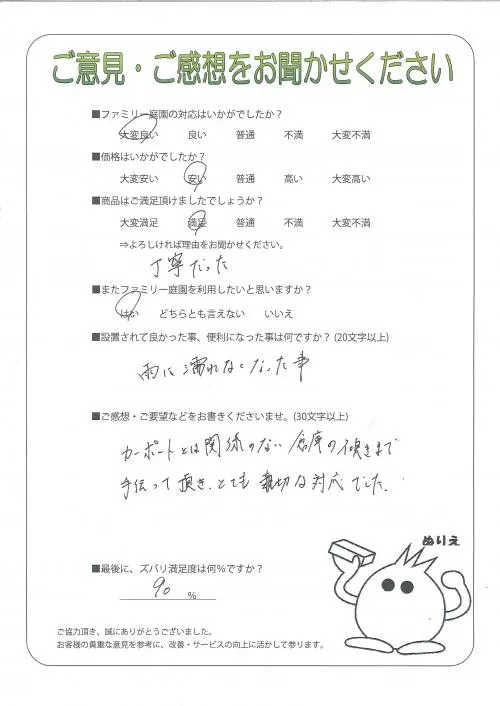 ご意見・ご感想をお聞かせください
■ファミリー庭園の対応はいかがでしたか？
大変良い 良い 普通 不満 大変不満
■価格はいかがでしたか？
大変安い 安い 普通 高い 大変高い
■商品はご満足頂けましたでしょうか？
大変満足 満足 普通 不満 大変不満
⇒よろしければ理由をお聞かせください。
丁寧だった
■またファミリー庭園を利用したいと思いますか？
はい どちらとも言えない いいえ
■設置されて良かった事、便利になった事は何ですか？(20文字以上)
雨に濡れなくなった事
■ご感想・ご要望などをお書きくださいませ。(30文字以上)
カーポートとは関係のない倉庫の傾きまで
手伝って頂き、とても親切な対応でした。
ぬりえ
■最後に、ズバリ満足度は何％ですか？
90 ％
ご協力頂き、誠にありがとうございました。
お客様の貴重な意見を参考に、改善・サービスの向上に活かして参ります。